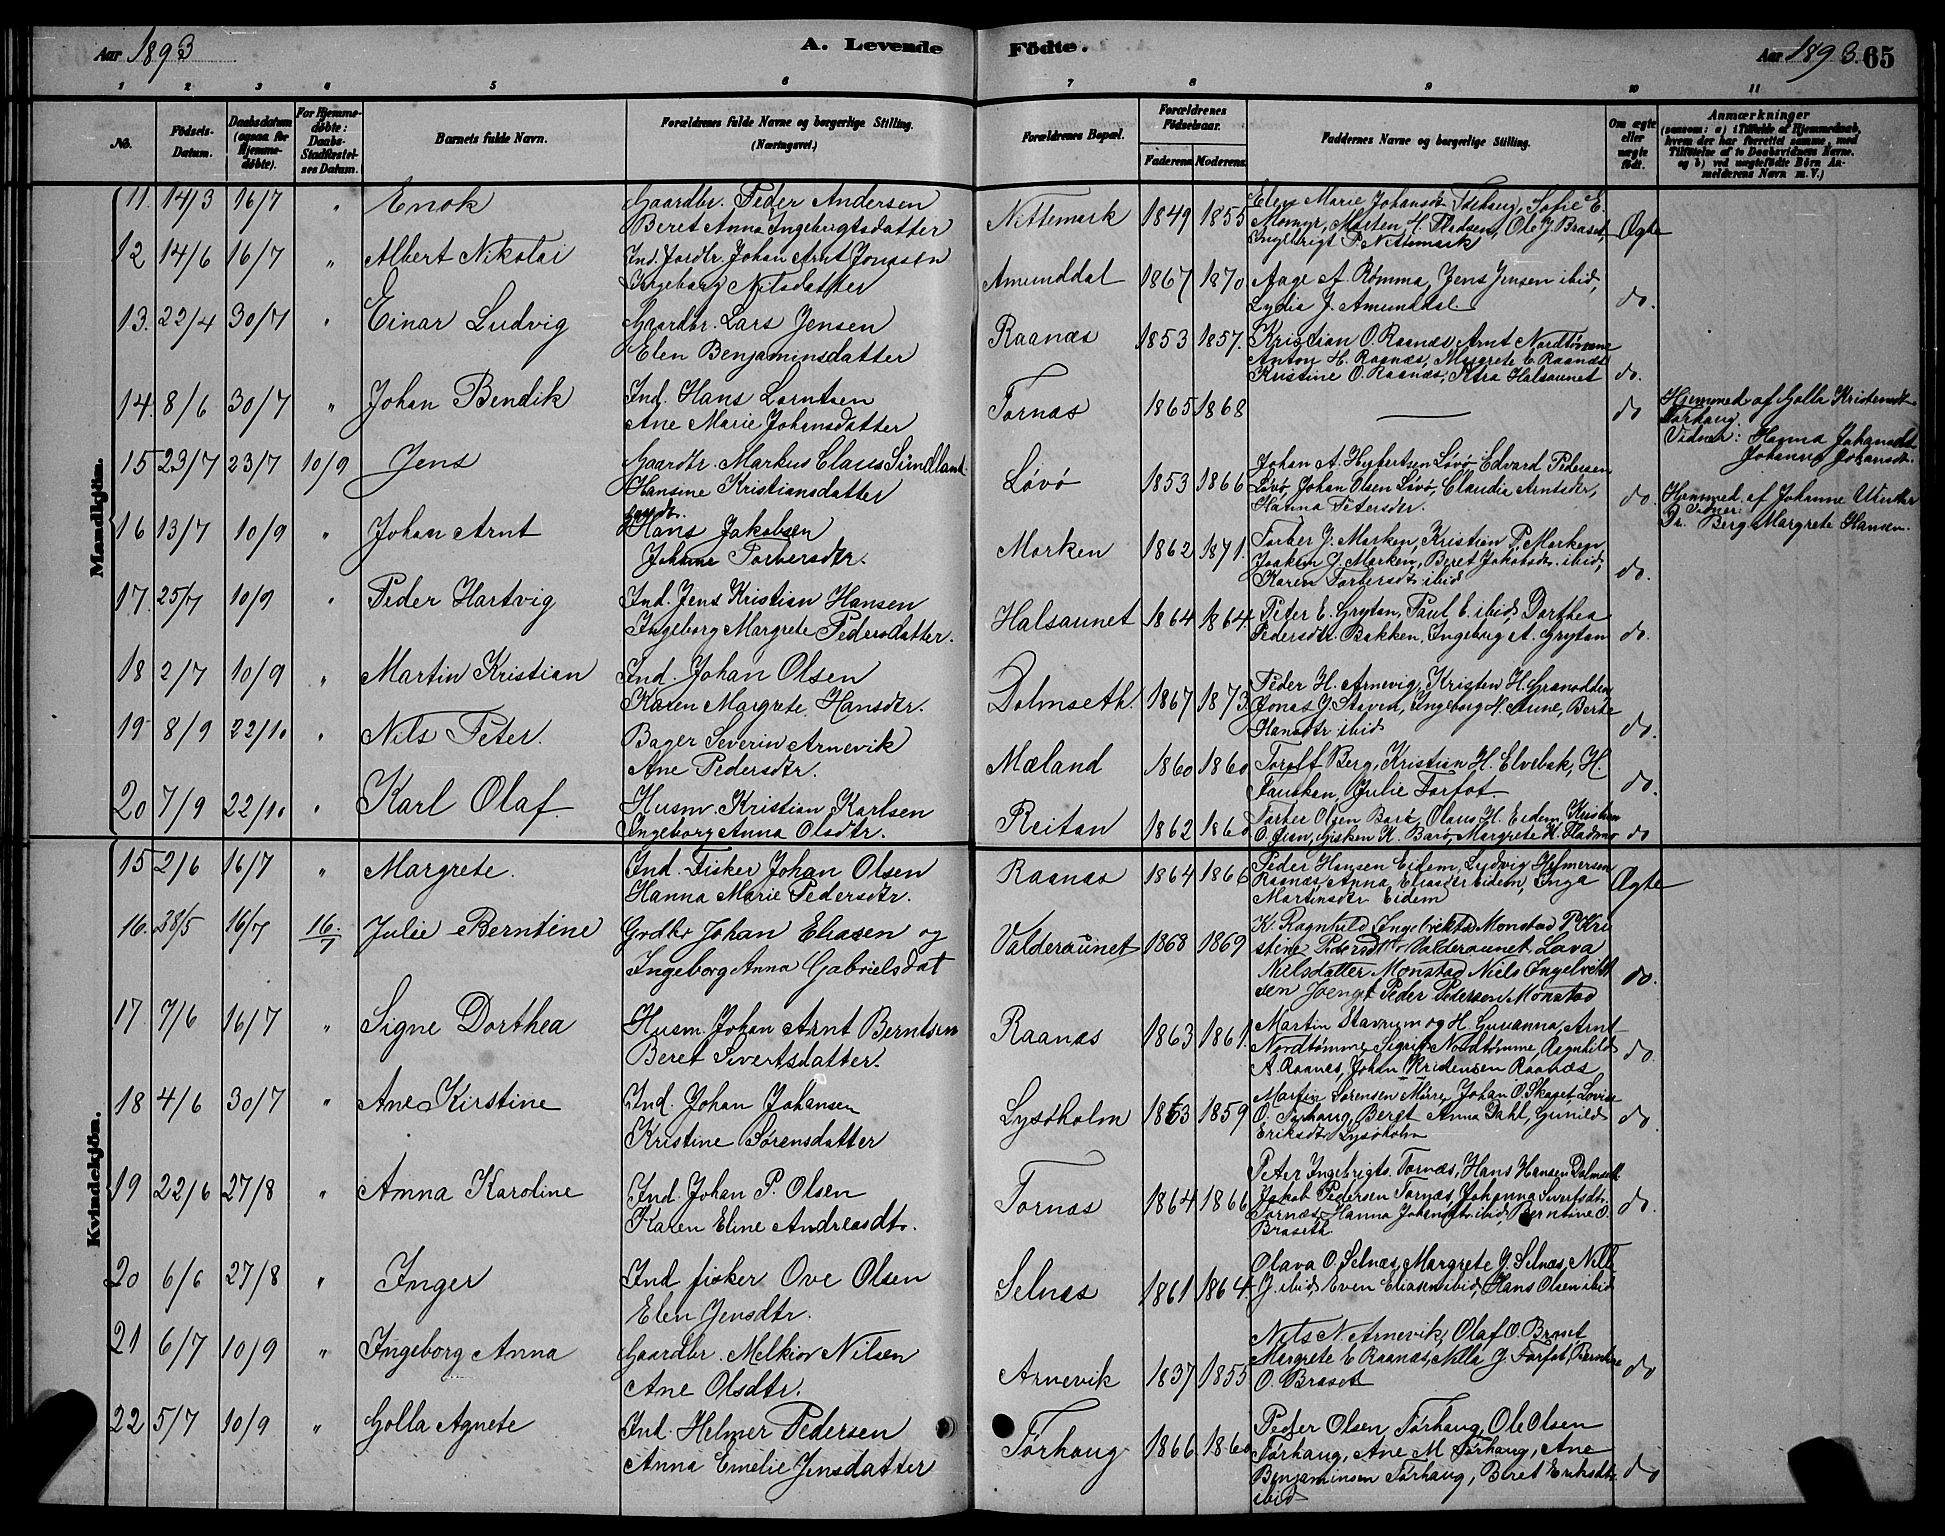 Aar 1893
A. Levende
Födte.
Aar 1893. 65
1 2 3 4 5 6 7 8 9 10 11
No.
Födsels-Datum.
Daabsdatum (ogsaa for Hjemme-döbte).
For Hjemme-döbte: Daabs-Stadfæstel-ses Datum.
Barnets fulde Navn.
Forældrenes fulde Navne og borgerlige Stilling.
(Næringsvei.)
Forældrenes Bopæl.
Forældrenes Födselsaar.
Faderens Moderens
Faddernes Navne og borgerlige Stilling.
Om ægte eller uægte födt.
Anmærkninger
(saasom: a) i Tilfælde af Hjemmedaab,
hvem der har forrettet samme, med
Tilföielse af to Daabsvidners Navne,
og b) ved uægtefödte Börn An-
melderens Navn m. V.)
Mandkjön.
11. 14/3 16/7 " Enok
Gaardbr. Peder Andersen
Beret Anna Ingebrigtsdatter
Nittemark 1849 1855
Elen Marie Johansdr Tørhaug, Sofie E.
Momyr, Morten H. Fladsen, Ole J Braset,
Ingebrigt P. Nittemark
Ægte
12 14/6 16/7 " Albert Nikolai
Ind. Jordbr. Johan Arnt Jonasen
Ingeborg Nilsdatter
Amunddal 1867 1870
Aage A. Rømma, Jens Jensen ibid,
Lydia J. Amunddal
do.
13. 22/4 30/7 " Einar Ludvig
Gaardbr. Lars Jensen
Elen Benjaminsdatter
Raanæs 1853 1857.
Kristian O. Raanæs, Arnt Nordtømme
Anton H. Raanæs, Margrete E. Raanæs
Kristine O. Raanæs, Halsaunet
do.
14. 8/6 30/7 " Johan Bendik
Ind. Hans Lorntsen
Ane Marie Johansdatter
Tornæs 1865 1868
—
do
Hjemmed. af Golla Kristensdr
Tørhaug.
Vidner: Hanna Johansdtr
Johanna Johansdr.
15 23/7 23/7 10/9 Jens
Gaardbr. Markus Claus Sundland
Hansine Kristiansdatter
Løvø 1853 1866
Johan A. Hybertsen Løvø, Edvard Pedersen
Løvø, Johan Olsen Løvø, Claudia Arntsdtr,
Hanna Petersdtr.
do
Hjemmed. af Johanne
Vidner:
Berg Margrete Hansen.
16 13/7 10/9 " Johan Arnt
Hans Jakobsen
Johanne Torbersdtr.
Morken 1862 1871.
Torber J. Morken, Kristian P. Morken
Joakim J. Morken, Beret Jakobsdr. ibid,
Karen Torbersdtr ibid
do.
17. 25/7 10/9 " Peder Hartvig
Ind. Jens Kristian Hansen
Ingeborg Margrete Pedersdatter.
Halsaunet 1864 1864
Peder E. Grytan, Paul E. ibid, Dorthea
Pedersdtr. Bakken, Ingeborg A. Grytan
do.
18 2/7 10/9 " Martin Kristian
Ind. Johan Olsen
Karen Margrete Hansdtr.
Dolmseth. 1867 1873
Peder H. Arnevig, Kristen H. Granodden
Jonas J Staven, Ingeborg H. Arne, Berte
Hansdtr ibid
do.
19 8/9 22/10 " Nils Peter.
Bager Severin Arnevik
Ane Pedersdtr.
Mæland 1860 1860
Toralf Berg, Kristian H. Elvebak, H.
Fauskan, Julie Forfot
do.
20 7/9 22/10 " Karl Olaf
Husm. Kristian Karlsen
Ingeborg Anna Olsdtr.
Reitan 1862 1860
Torber Olsen Barø, Olaus H. Eidem, Kristian
O. Oian, Gisken K. Barø, Margrete K. Fladmo
do
Kvindekjön.
15 2/6 16/7 " Margrete.
Ind. Fisker Johan Olsen
Hanna Marie Pedersdtr.
Raanæs 1864 1866
Peder Hansen Eidem, Ludvig Helmersen
Raanæs, Anna Eliasdtr Eidem, Inga
Martinsdtr Eidem
Ægte
16. 28/5 16/7 16/7 Julie Berntine
Grdbr Johan Eliasen og
Ingeborg Anna Gabrielsdat
Valderaunet 1868 1869
K. Ragnhild Ingebrektd Monstad P. Kri
stine Pedersdtr Valderaunet Lava
Nielsdatter Monstad Niels Ingelbrekt
sen Joenget Peder Pedersen Monstad
do.
17. 7/6 16/7 " Signe Dorthea
Husm. Johan Arnt Berntsen
Beret Sivertsdatter.
Raanæs 1863 1861.
Martin Stavrum og H. Guruanna, Arnt
Nordtømme, Sigrid Nordtømme, Ragnhild
A. Raanæs, Johan Kristensen Raanæs
do.
18 4/6 30/7 " Ane Kirstine
Ind. Johan Johansen
Kristine Sørensdatter
Lysøholm 1863 1859
Martin Sørensen Mørre, Johan O. Skaget, Lovise
O. Tørhaug, Bergt Anna Dahl, Gunild
Eriksdtr Lysøholm
do.
19 22/6 27/8 " Anna Karoline
Ind. Johan P. Olsen
Karen Eline Andreasdtr.
Tornæs 1864 1866
Peter Ingebrigts. Tornæs, Hans Hansen Dolmseth
Jakob Pedersen Tornæs, Johanna Sivertsdtr.
Tornæs, Hanna Johansdtr ibid, Berntine O.
Braseth
do.
20 6/6 27/8 " Inger
Ind fisker Ove Olsen
Elen Jensdtr.
Selnæs 1861 1864.
Olava O. Selnæs, Margrete J. Selnæs, Nill
J. ibid, Even Eliasen ibid, Hans Olsen ibid
21 6/7 10/9 " Ingeborg Anna
Gaardbr. Melkior Nilsen
Ane Olsdtr.
Arnevik 1837 1855
Nils N. Arnevik, Olaf O. Braset,
Margrete E Raanæs, Nilla J. Forfot, Berntine
O. Braset
do
22 5/7 10/9 " Golla Agnete
Ind. Helmer Pedersen
Anna Emelie Jensdatter
Tørhaug 1866. 1860
Peder Olsen Tørhaug, Ole Olsen
Tørhaug, Ane M. Tørhaug, Ane
Benjaminsen Tørhaug, Beret Eriksdtr
ibid
do